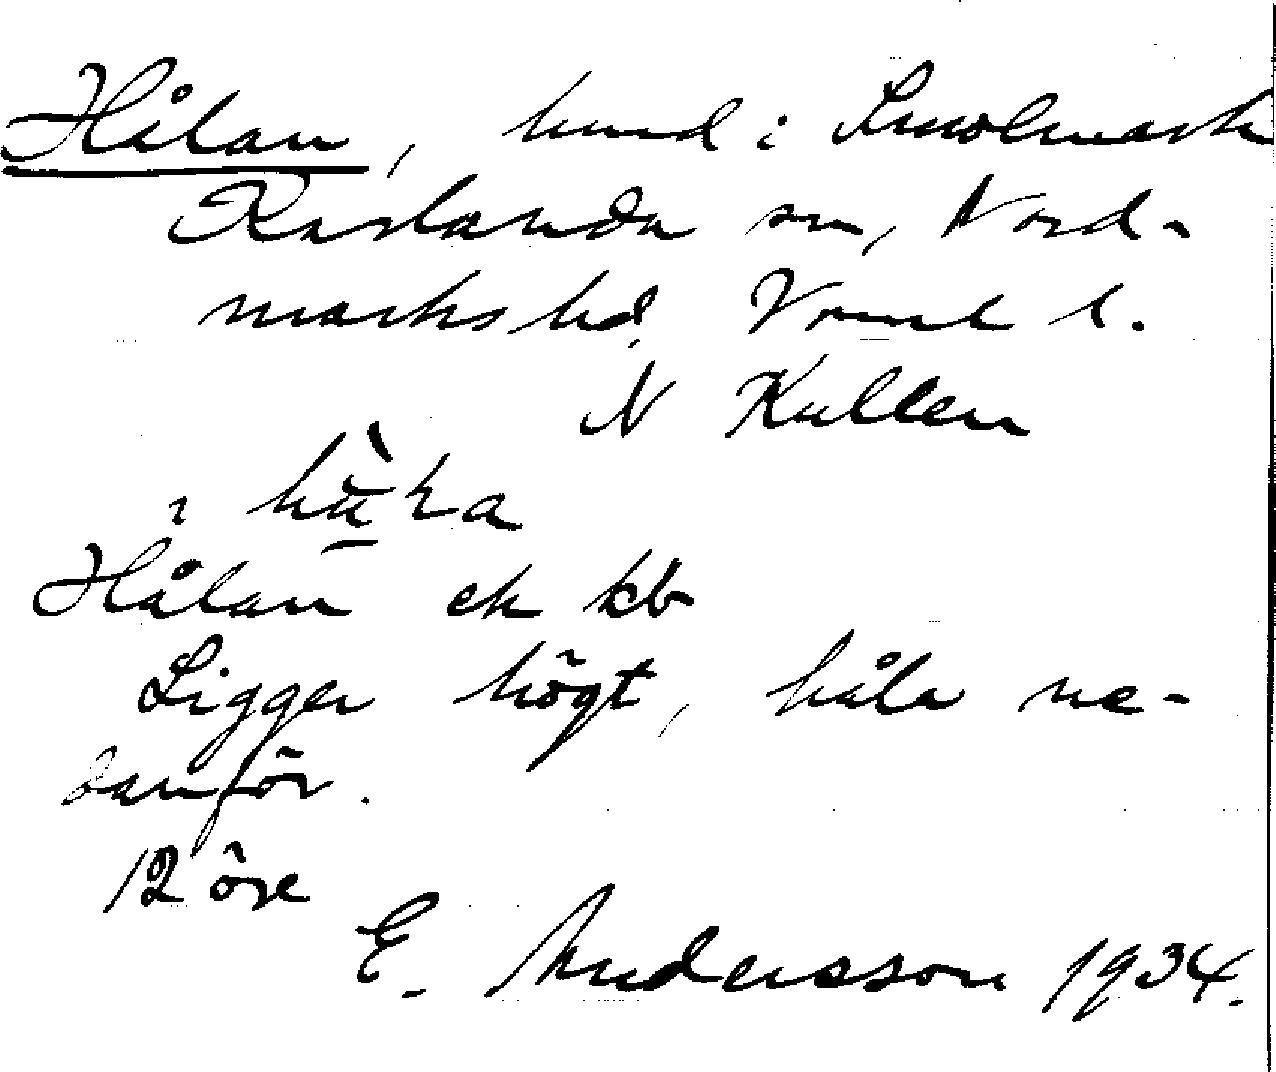 Hålan, hmd i Smolmark
Karlanda sn, Nord-
marks hd, Vrml l.
N Kullen
i hu̱̇̀ɬa
Hålan ek kb
Ligger högt, håla ne-
danför.
12 öre
E. Andersson 1934.